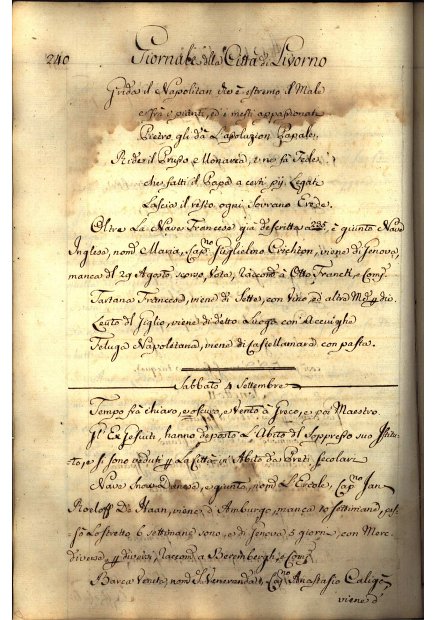 240 Giornale della Città di Livorno
Grida il Napolitan che è estremo il Male
e frà e pianti, ed i mesti appassionati
Pietro gli dà l'assoluzion Papale.
Ride il Prusso e Monarca, e ne fà Fede
che fatti il Papa a certi pij Legati
Lascia il resto ogni Sovrano Erede.
Oltre La Nave Francese già descritta a 235, è giunta Nave
Inglese, nom.ª Maria, Cap.no Guglielmo Crichton, viene di Genova,
manca dl 29 Agosto scorso, Vota, Raccom.ª a Otto Franck, e Comp.
Tartana Francese, viene di Sette, con Vino, ed altra Merc.
Leuto dl Giglio, viene di detto Luogo con Acciughe
Feluga Napoletana, viene di Castellamare con pasta.
Sabbato 4 Settembre
Tempo frà chiaro, e oscuro, e Vento a Greco, e poi Maestro
Gl' Ex Gesuiti, hanno deposto L'Abito dl Soppresso suo Istitu-
to, e si sono veduti p la Città, in Abito da Preti secolari
Nave Danese, è giunta, nom.ª L'Ercole, Cap.no Jan
Roelof De Haan, viene, d'Amburgo, manca 10 Settimane, pas-
sò Lo Stretto 6 settimane sono, e di Genova 5 giorni, con Merc.
diverse, p diversi, Raccom.ª a Berembergh, e Comp.
Barca Veneta, nom.ª La Veneranda, Cap.no Anastasio
viene d'